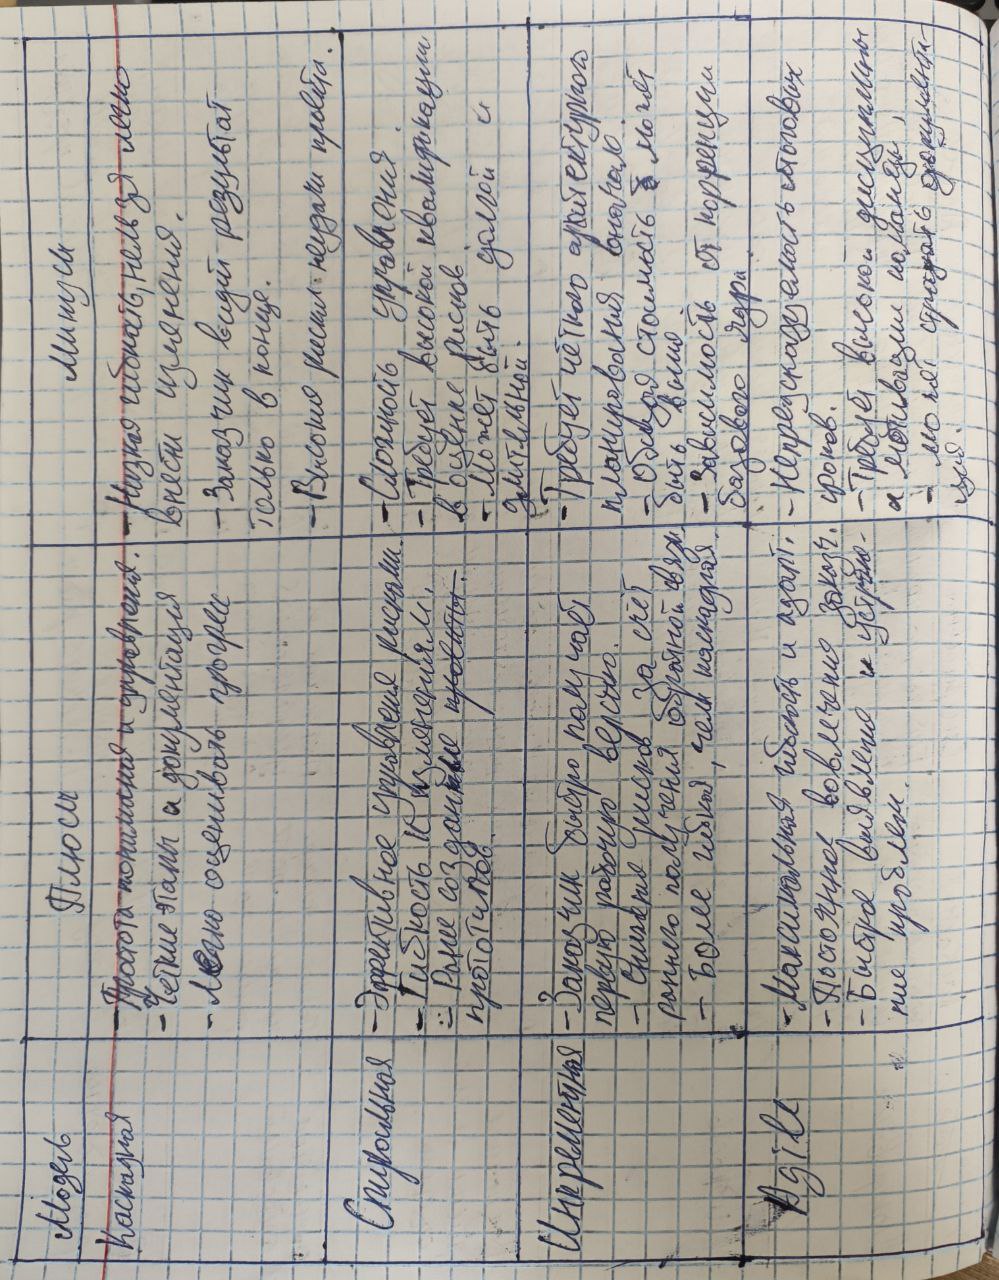 Модель
Плюсы
Минусы
Каскадная
- Простота понимания и управления.
- Чёткие этапы и документация
- Легко оценивать прогресс
- Низкая гибкость, нельзя легко
внести изменения.
- Заказчик видит результат
только в конце.
- Высокие риски неудачи проекта.
Спиральная
- Эффективное управление рисками.
- Гибкость к изменениям.
- Ранее создание
прототипов.
- Сложность управления.
- Требует высокой квалификации
в оценке рисков
- Может быть долгой и
длительной.
Инкрементная
- Заказчик быстро получает
первую рабочую версию.
- Снижение рисков за счёт
раннего получения обратной связи.
- Более гибкая, чем каскадная.
- Требует чёткого архитектурного
планирования вначале.
- Общая стоимость может
быть выше.
- Зависимость от коррекции
базового ядра.
Agile
- Максимальная гибкость и адапт.
- Постоянное вовлечение заказч.
- Быстрое выявление и устране-
ние проблем.
- Непредсказуемость итоговых
сроков.
- Требует высокой дисциплины
и мотивации команды,
- может страдать документа-
ция.